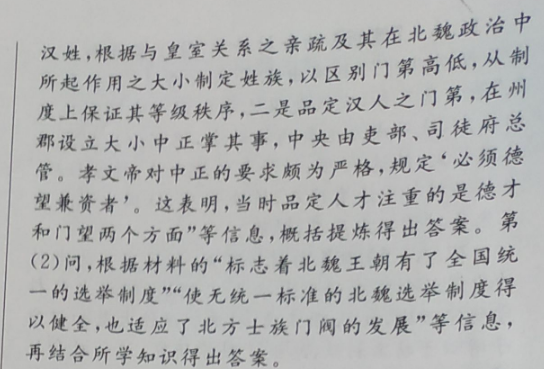 汉姓,根据与皇室关系之亲疏及其在北魏政治中
所起作用之大小制定姓族,以区别门第高低,从制
度上保证其等级秩序,二是品定汉人之门第,在州
郡设立大小中正掌其事,中央由吏部、司徒府总
管。孝文帝对中正的要求颇为严格,规定‘必须德
望兼资者’。这表明,当时品定人才注重的是德才
和门望两个方面”等信息,概括提炼得出答案。第
(2)问,根据材料的“标志着北魏王朝有了全国统
一的选举制度”“使无统一标准的北魏选举制度得
以健全,也适应了北方士族门阀的发展”等信息,
再结合所学知识得出答案。